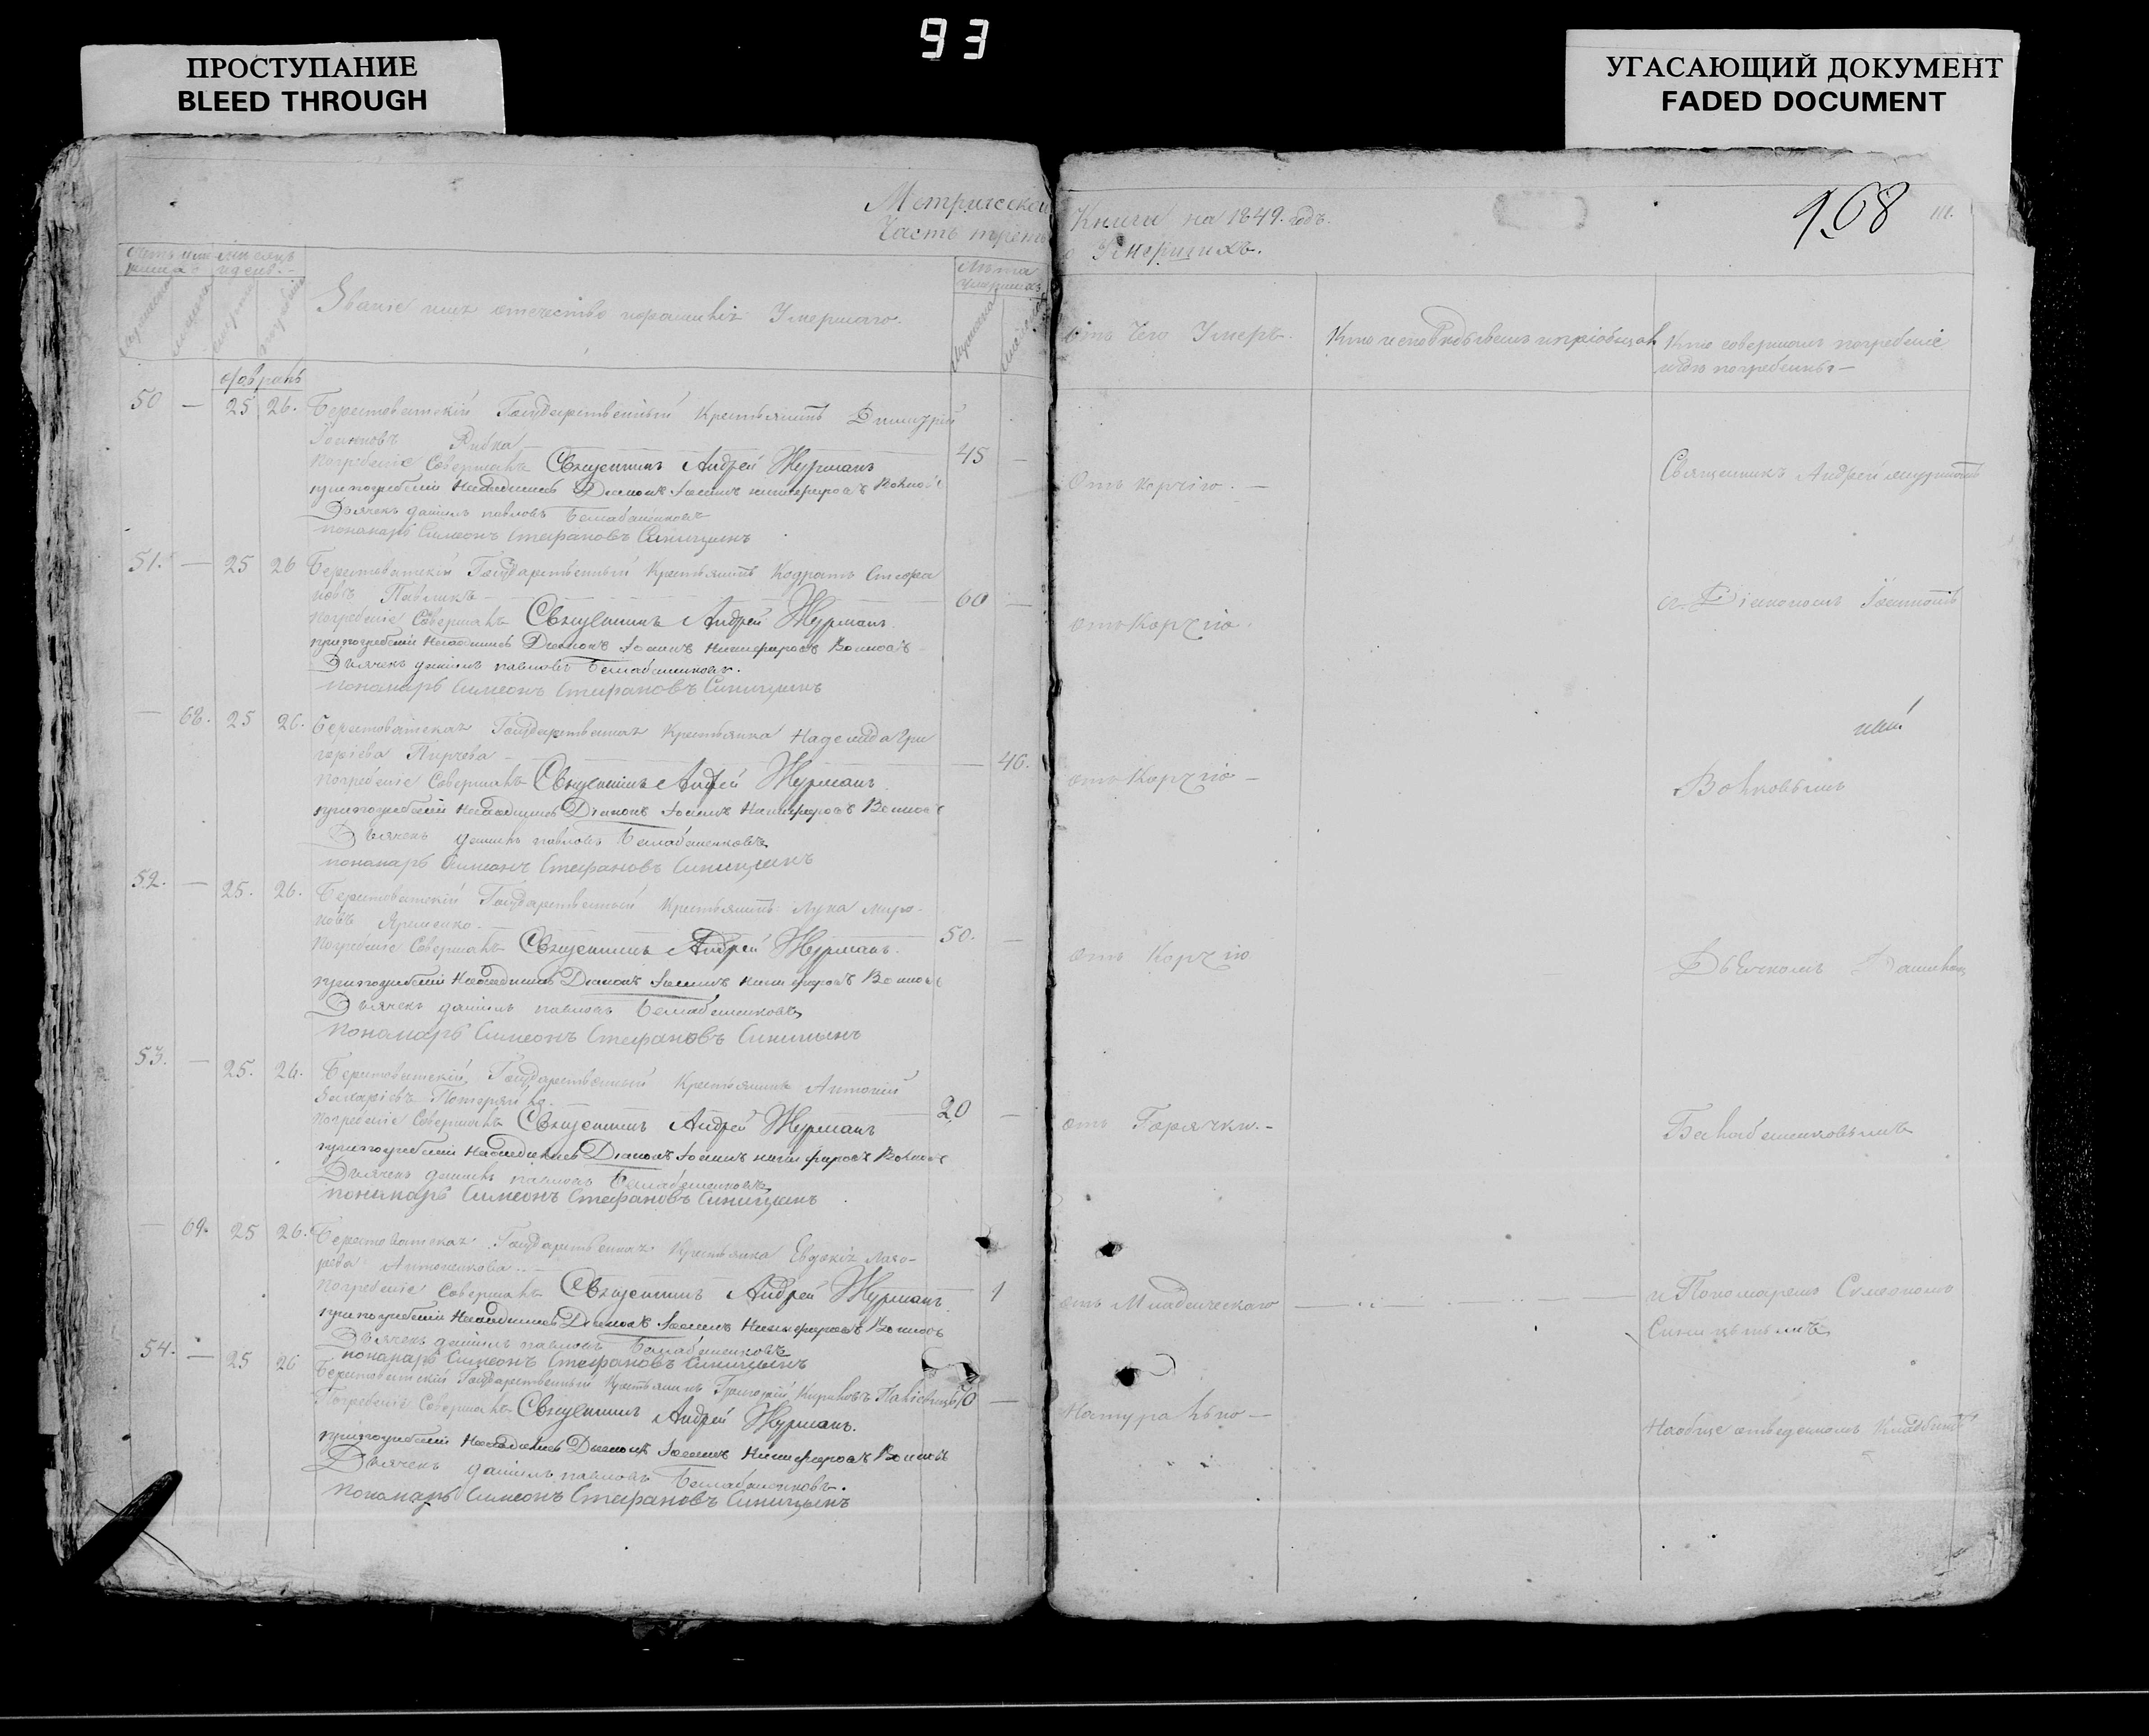 93
ПРОСТУПАНИЕ
BLEED THROUGH
УГАСАЮЩИЙ ДОКУМЕНТ
FADED DOCUMENT
968
Метрической Книги на 1849. годъ.
Часть третья о Умершихъ.
Лѣта Умершихъ
Званіе имя отечество и фамилія Умершаго.
отъ Чего Умеръ.
Кто исповѣдывалъ и пріобщалъ
Кто совершалъ погребеніе и гдѣ погребенны
февраль
50 — 25 26. Берестоватскій Государственный Крестьянинъ Димитрій
Іоанновъ Рибка 45 —
погребеніе Совершалъ Священникъ Андрей Журманъ
при погребеніи Находились Діаконъ Іоаннъ Никифоровъ Волковъ
Дьячекъ Даніилъ павловъ Балабашенковъ
пономарь Симеонъ Стефановъ Синицынъ
Отъ корчію. —
Священникъ Андрей
51. — 25 26 Берестоватскій Государственный Крестьянинъ Кодратъ Стефа
новъ Павликъ 60 —
погребеніе Совершалъ Священникъ Андрей Журманъ.
при погребеніи Находились Діаконъ Іоаннъ Никифоровъ Волковъ
Дьячекъ Даніилъ павловъ Балабашенковъ.
пономарь Симеонъ Стефановъ Синицынъ
отъ Корчію.
съ Діакономъ Іоанномъ
— 68. 25 26. Берестоватская Государственная Крестьянка Надежда Гри
горіева — 46.
погребеніе Совершалъ Священникъ Андрей Журманъ
при погребеніи Находились Діаконъ Іоаннъ Никифоровъ Волковъ
Дьячекъ Даніилъ павловъ Балабашенковъ
пономарь Симеонъ Стефановъ Синицынъ
отъ Корчію —
Волковымъ
52. — 25. 26. Берестоватскій Государственный Крестьянинъ Лука Миро-
новъ Яременко 50. —
погребеніе Совершалъ Священникъ Андрей Журманъ.
при погребеніи Находились Діаконъ Іоаннъ Никифоровъ Волковъ
Дьячекъ Даніилъ павловъ Балабашенковъ
пономарь Симеонъ Стефановъ Синицынъ
отъ Корчію
Дьячкомъ Даніиломъ
53. — 25. 26. Берестоватскій Государственный Крестьянинъ Антоній
Захаріевъ 20 —
погребеніе Совершалъ Священникъ Андрей Журманъ
при погребеніи Находились Діаконъ Іоаннъ Никифоровъ Волковъ
Дьячекъ Даніилъ павловъ Балабашенковъ
пономарь Симеонъ Стефановъ Синицынъ
отъ Горячки. —
Балабашенковымъ
— 69. 25 26. Берестоватская Государственная Крестьянка Евдокія Лаза-
рева Антоненкова 1
погребеніе Совершалъ Священникъ Андрей Журманъ
при погребеніи Находились Діаконъ Іоаннъ Никифоровъ Волковъ
Дьячекъ Даніилъ павловъ Балабашенковъ
пономарь Симеонъ Стефановъ Синицынъ
отъ Младенческаго
и Пономаремъ Симеономъ
Синицынымъ
54. — 25 26 Берестоватскій Государственный Крестьянинъ Григорій Кириловъ 70 —
Погребеніе Совершалъ Священникъ Андрей Журманъ.
при погребеніи Находились Діаконъ Іоаннъ Никифоровъ Волковъ
Дьячекъ Даніилъ павловъ Балабашенковъ.
пономарь Симеонъ Стефановъ Синицынъ
Натурально —
На обще отведенномъ Кладбищѣ